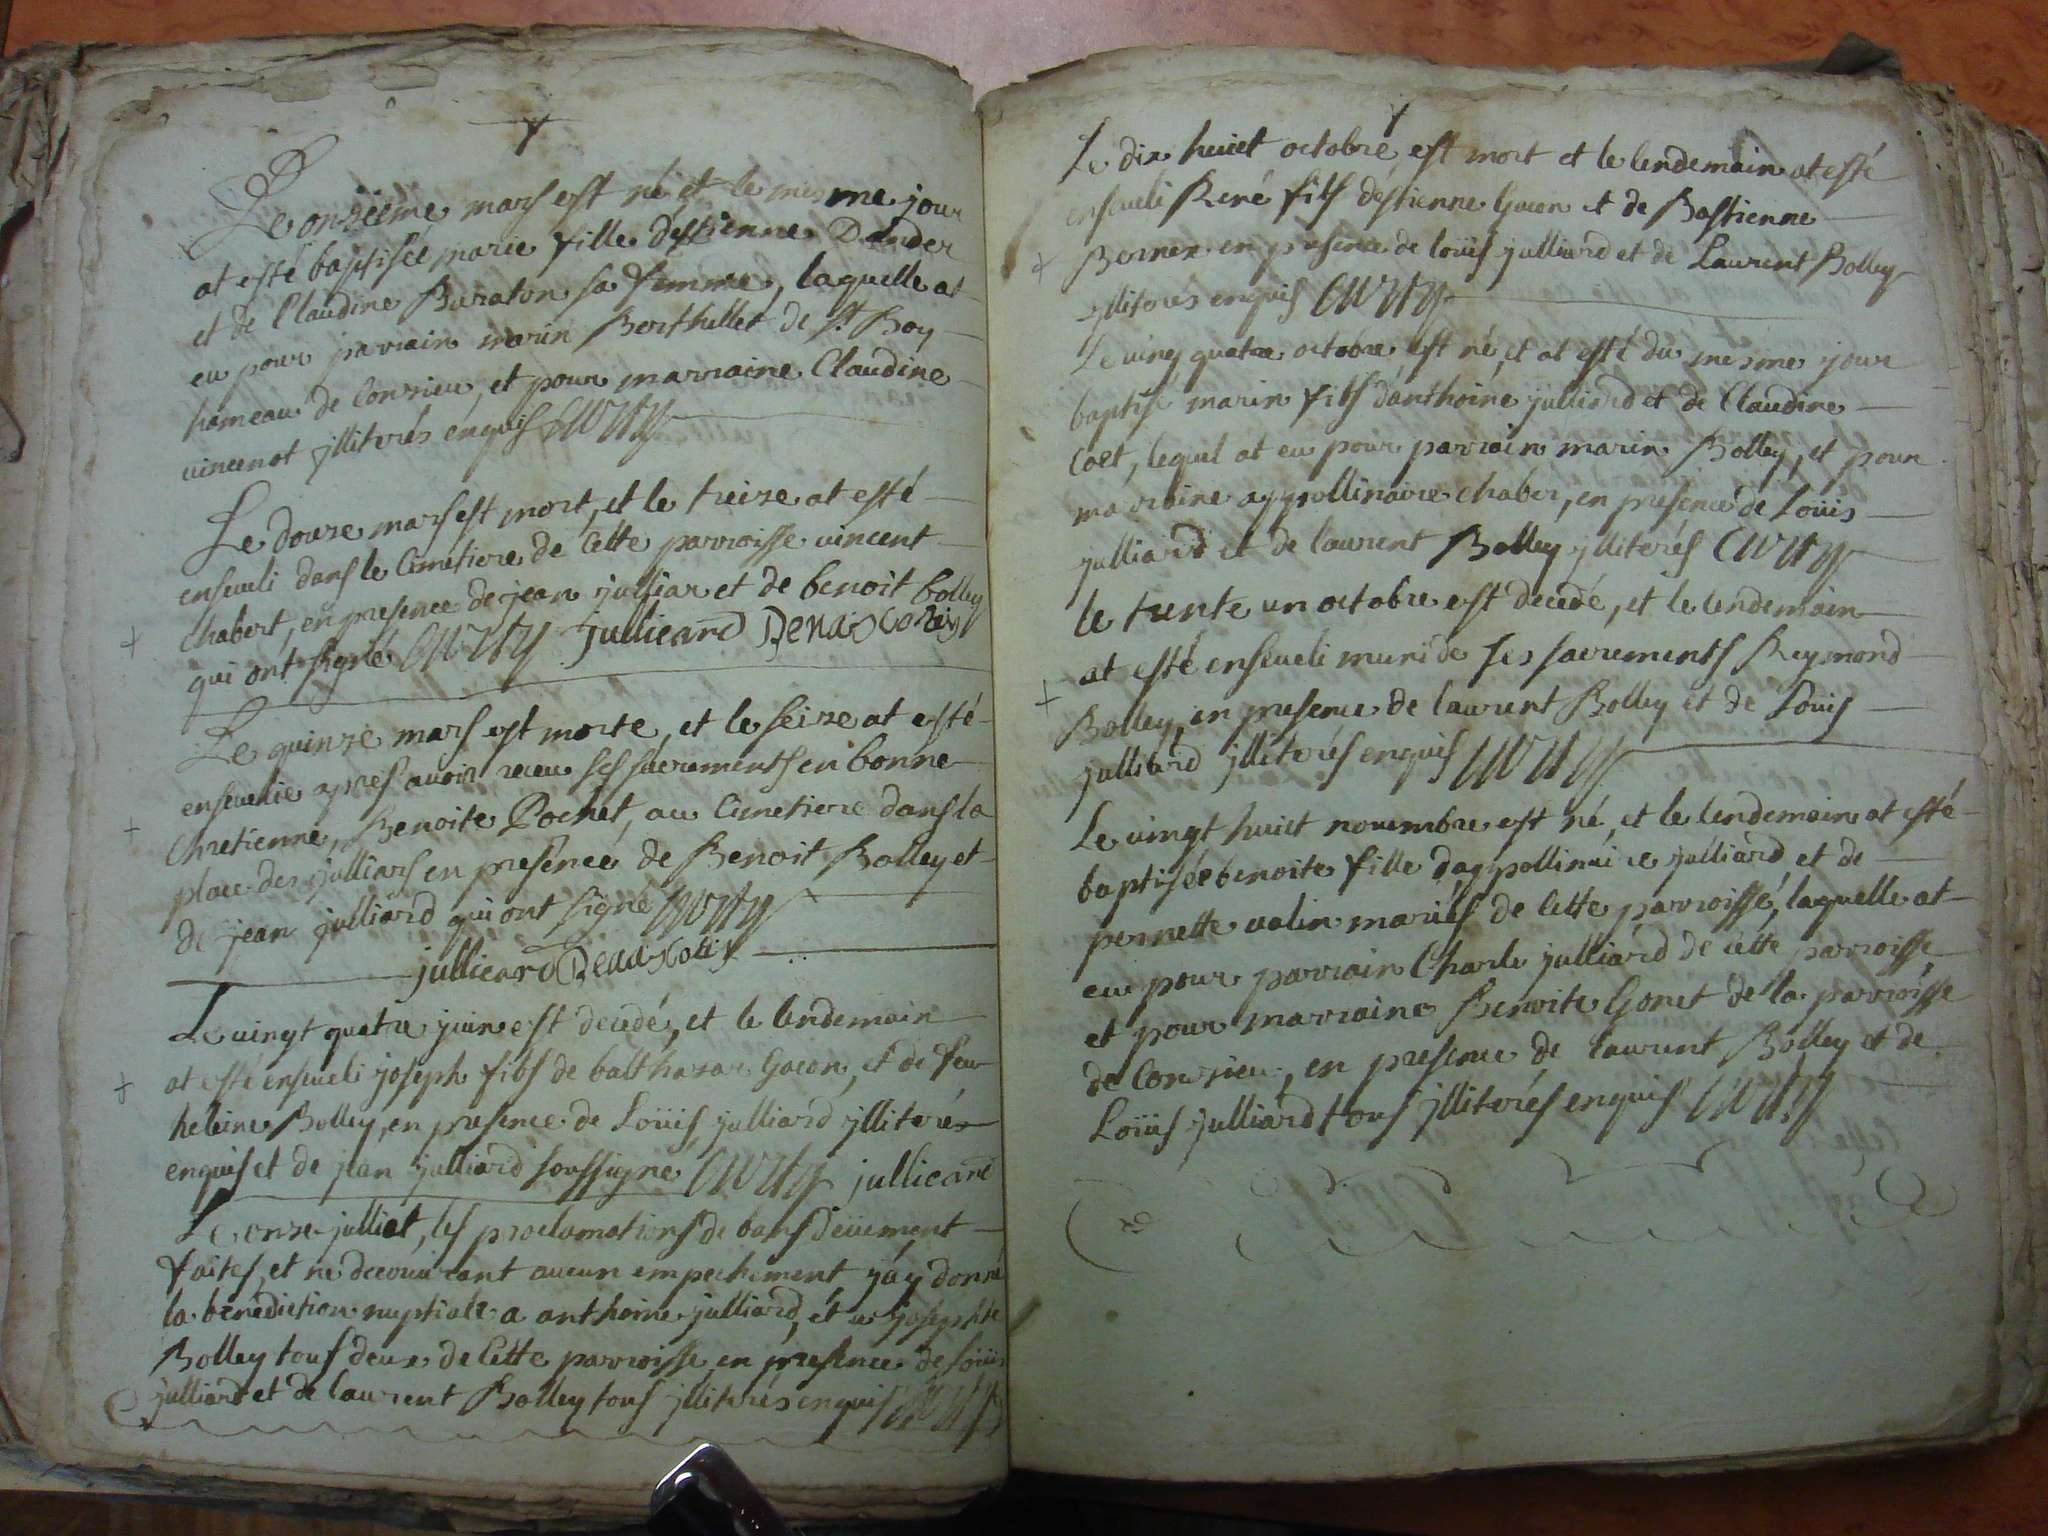 Le onzieme mars est né et le mesme jour
at esté baptisée marie fille d'éstienne Dander
et de Claudine Buraton sa femme, laquelle at
eu pour parrain marin Berthellet de St Boy
hameau de Conzieu, et pour marraine Claudine
vincenot jlliterés enquis
Le douze mars est mort, et le treize at esté
enseueli dans le Cimetiere de Cette parroisse vincent
Chabert, en presence de jean julliar et de benoit bolley
qui ont signé jullieard
Le quinze mars est morte, et le seize at esté
enseuelie apres auoir receu ses sacrements en bonne
Chretienne, Benoite Pochet, au Cimetiere dans la
place des julliars en presence de Benoit Bolley et
de jean julliard qui ont signé
jullieard
Le uingt quatre juin est decedé, et le lendemain
at esté enseueli joseph fils de balthazar Gueon, et de feu
heleine Bolley, en presence de Loüis julliard jlliterés
enquis et de jean julliard soussigné jullieard
Le onze julliet, les proclamations de bans deüement
faites, et ne decouurant aucun empechement j'ay donné
la benediction nuptiale a anthoine julliard, et a josephte
Bolley tous deux de Cette parroisse en presence de Loüis
julliard et de laurent Bolley tous jlliterés enquis
Le dix huiet octobre est mort et le lendemain at esté
enseueli René fils d'éstienne Gueon et de Bastienne
Bornex en presence de loüis julliard et de Laurent Bolley
jlliterés enquis
Le uing quatre octobre est né, et at esté du mesme jour
baptisé marin fils d'anthoine julliard et de Claudine
Coet, lequel at eu pour parrain marin Bolley, et pour
marraine appollinaire chaber, en presence de Loüis
julliard et de laurent Bolley jlliterés
le trente un octobre est decedé, et le lendemain
at esté enseueli muni de ses sacrements Reymond
Bolley, en presence de laurent Bolley et de Loüis
julliard jlliterés enquis
Le uingt huiet nouembre est né, et le lendemain at esté
baptisée benoite fille d'appollinaire julliard et de
pernette valin mariés de Cette parroisse, laquelle at
eu pour parrain Charle julliard de cette parroisse
et pour marraine Benoite Gonet de la parroisse
de Conzieu, en presence de laurent Bolley et de
Loüis julliard tous jlliterés enquis